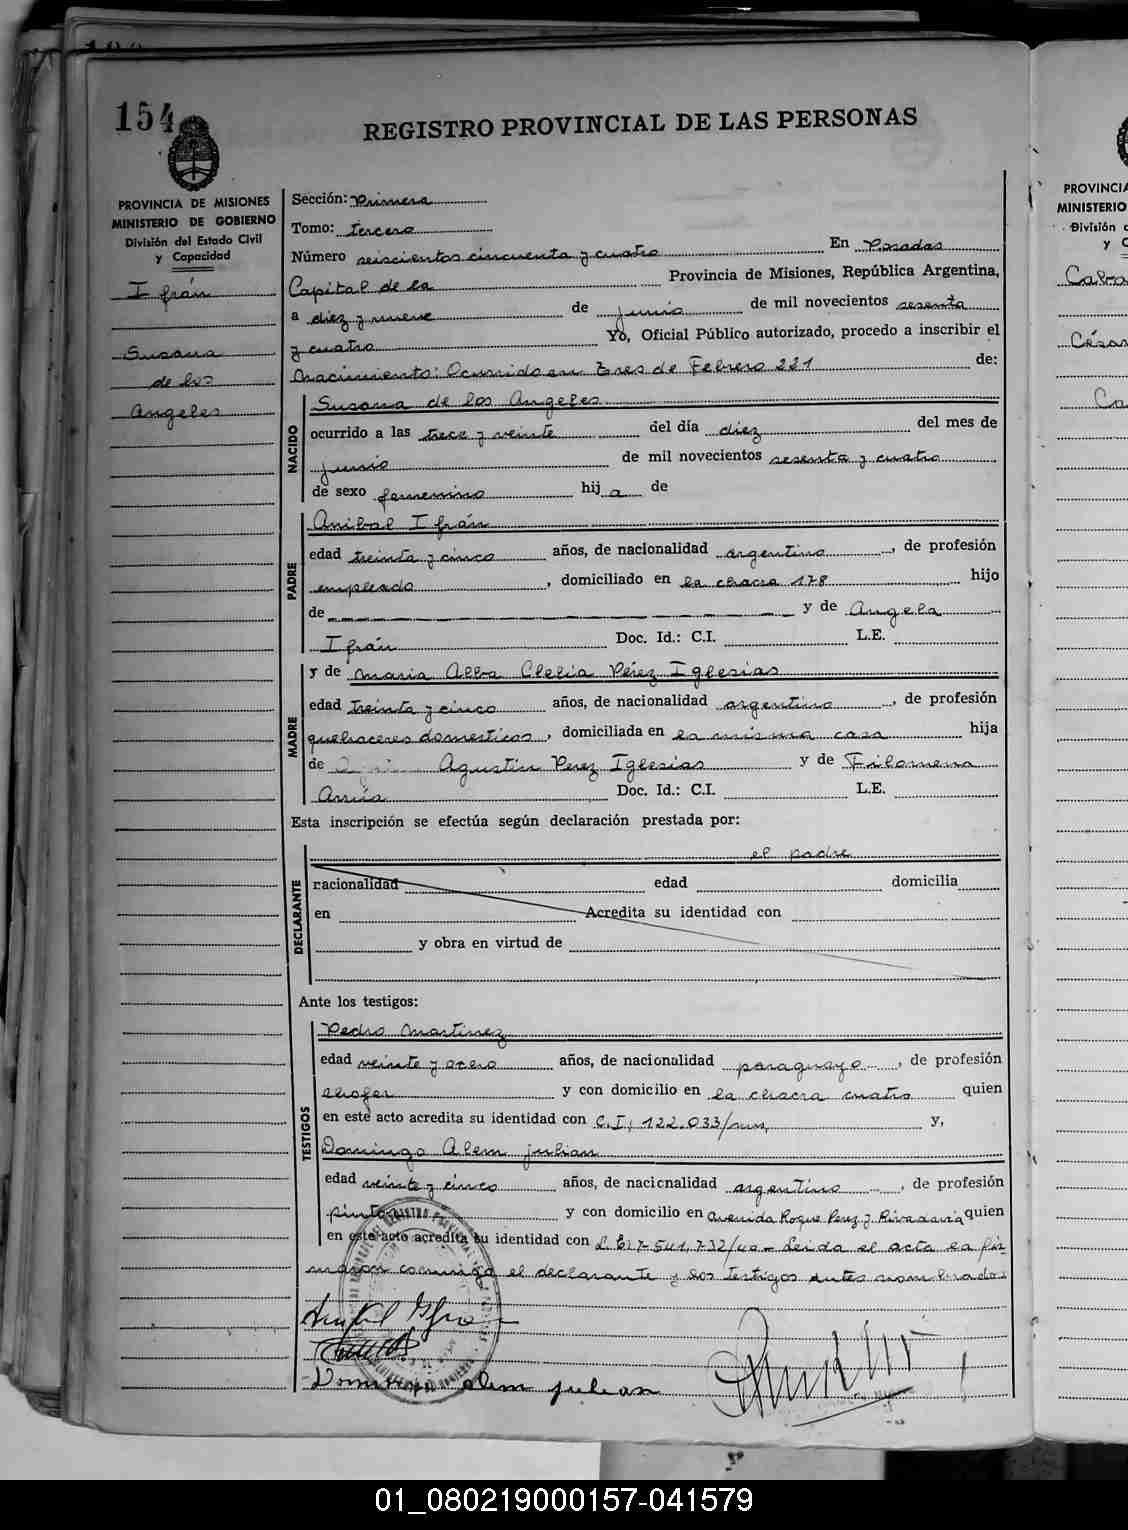 154
REGISTRO PROVINCIAL DE LAS PERSONAS
PROVINCIA DE MISIONES
MINISTERIO DE GOBIERNO
División del Estado Civil
y Capacidad
Ifrán
Susana
de los
Angeles
Sección: Primera
Tomo: tercero
Número seiscientos cincuenta y cuatro En Posadas
Capital de la Provincia de Misiones, República Argentina,
a diez y nueve de junio de mil novecientos sesenta
y cuatro Yo, Oficial Público autorizado, procedo a inscribir el
nacimiento: Ocurrido en Tres de Febrero 221 de:
NACIDO
Susana de los Angeles
ocurrido a las trece y veinte del día diez del mes de
junio de mil novecientos sesenta y cuatro
de sexo femenino hij a de
PADRE
Anibal Ifrán
edad treinta y cinco años, de nacionalidad argentino, de profesión
empleado, domiciliado en la chacra 178 hijo
de y de Angela
Ifrán Doc. Id.: C.I. L.E.
MADRE
y de Maria Alba Clelia Pérez Iglesias
edad treinta y cinco años, de nacionalidad argentina, de profesión
quehaceres domesticos, domiciliada en la misma casa hija
de Agustín Perez Iglesias y de Filomena
Doc. Id.: C.I. L.E.
Esta inscripción se efectúa según declaración prestada por:
DECLARANTE
el padre
nacionalidad edad domicilia
en Acredita su identidad con
y obra en virtud de
Ante los testigos:
TESTIGOS
Pedro Martinez
edad veinte y ocho años, de nacionalidad paraguayo, de profesión
chofer y con domicilio en la chacra cuatro quien
en este acto acredita su identidad con C.I. 122.033/ y,
Domingo Alem julian
edad veinte y cinco años, de nacionalidad argentino, de profesión
pintor y con domicilio en avenida Roque Perez y Rivadavia quien
en este acto acredita su identidad con L.E. 7.541.732/40 - Leida el acta la fir
maron conmigo el declarante y los testigos antes nombrados.
Domingo alem julian
PROVINCIA
MINISTERIO
División d
y C
César
01_080219000157-041579